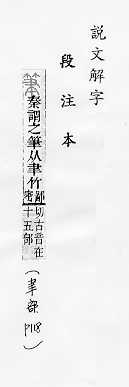 說文解字
段注本
筆秦謂之筆从聿竹鄙密切古音在十五部(聿部 P118)